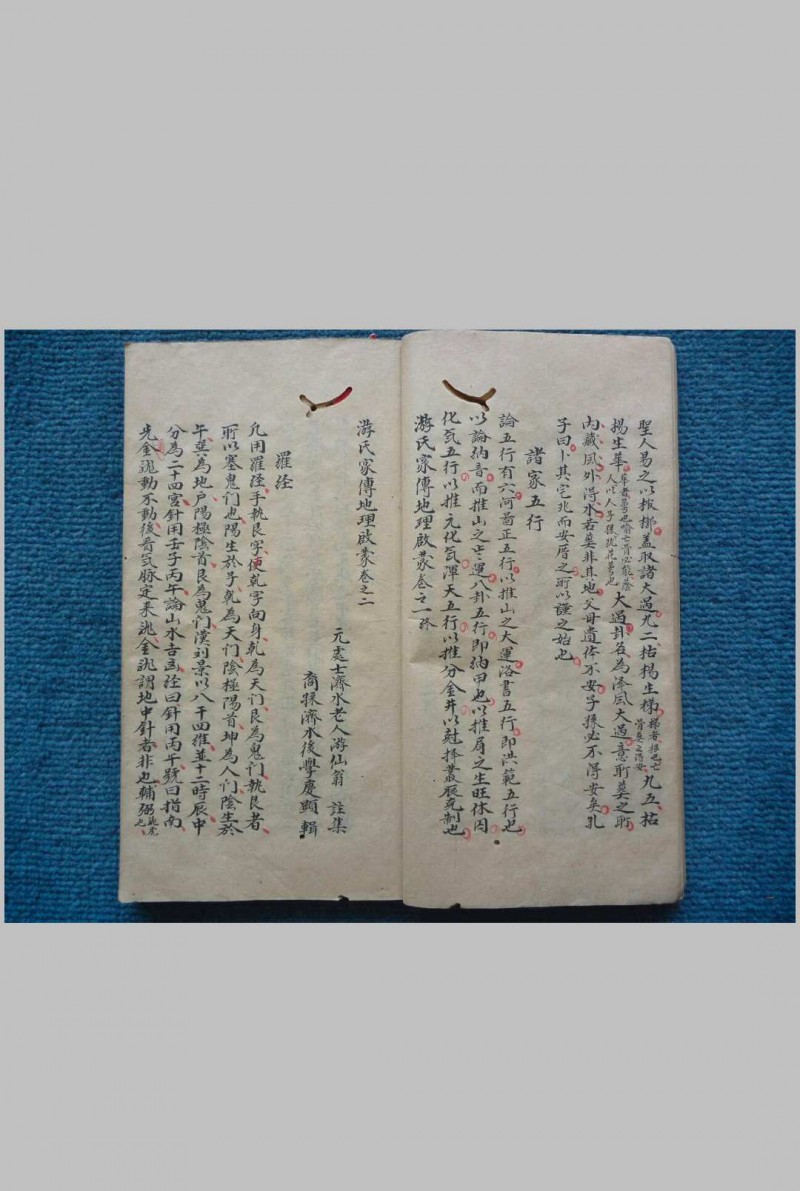 聖人易之以棺槨蓋取諸大過九二枯楊生梯梯者根也亡骨葵之得安九五枯
楊生華華者萼也喻亡骨必能蔭人以人子孫犹花萼也大過卦名為泽風大過意所葵之所
內藏風外得水若葵非其地父母遺体不安子孫必不得安矣孔
子曰卜其宅兆而安厝之所以謹之始也
諸家五行
論五行有六河啚正五行以推山之大運洛書五行即洪範五行也
以論納音而推山之運八卦五行即納甲也以推屑之生旺休囚
化気五行以推元化気渾天五行以推分金并以尅择叢辰克制也
游氏家傳地理啟蒙卷之一终
游氏家傳地理啟蒙卷之二
元處士濟水老人游仙翁註集
裔孫濟水後學慶顯輯
羅泾
凢用羅泾手執艮字使乾字向身乾為天门艮為鬼门執艮者
所以塞鬼门也陽生於子乾為天门陰極陽首坤為人门陰生於
午巽為地户陽極陰首艮為鬼门漢刘景以八干四維並十二時辰中
分為二十四宮針用壬子丙午論山水吉凶泾曰針用丙午號曰指南
先金跳動不動後看気脉定来跳金跳謂地中針者非也輔弼